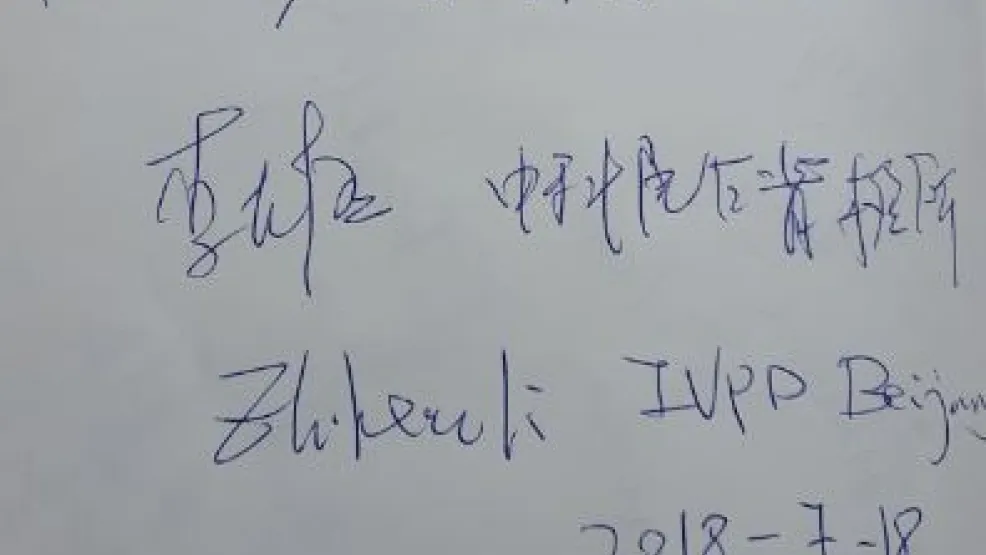 李志恒 中科院古脊椎所
Zhiheng Li IVPP Beijing
2018-7-18